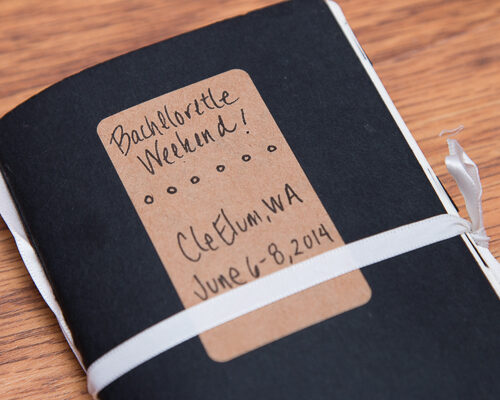 Bachelorette
Weekend!
Cle Elum, WA
June 6-8, 2014